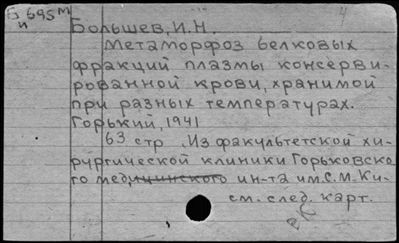 Б 695 м
и
Большев, И.Н.
Метаморфоз белковых
фракций плазмы консерви-
рованной крови, хранимой
при разных температурах.
Горький, 1941
63 стр. Из факультетской хи-
рургической клиники Горьковско-
го медицинского ин-та им. С.М. Ки-
см. след. карт.